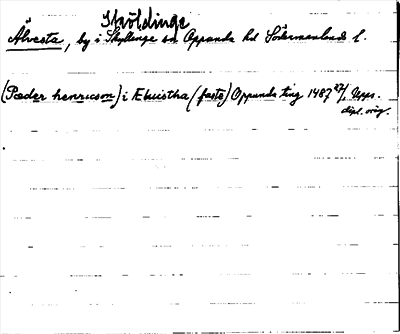 Sköldinge
Älvesta, by i Skyllinge sn Oppunda hd Södermanlands l.
(Pæder henricson) i Ælwistha (faste) Oppunda ting 1487 27/1 Upps.
dipl. orig.